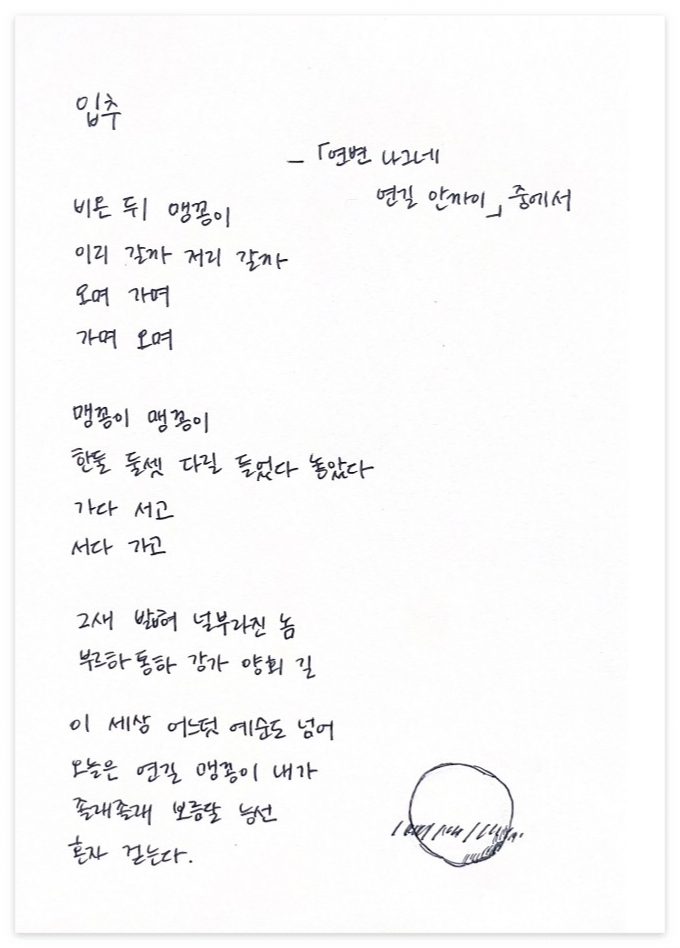 입추
- 「연변 나그네
연길 안까이」 중에서
비온 뒤 맹꽁이
이리 갈까 저리 갈까
오며 가며
가며 오며
맹꽁이 맹꽁이
한둘 둘셋 다릴 들었다 놓았다
가다 서고
서다 가고
그새 밟혀 널부라진 놈
부르하통하 강가 양회 길
이 세상 어느덧 예순도 넘어
오늘은 연길 맹꽁이 내가
졸래졸래 보름달 능선
혼자 걷는다.